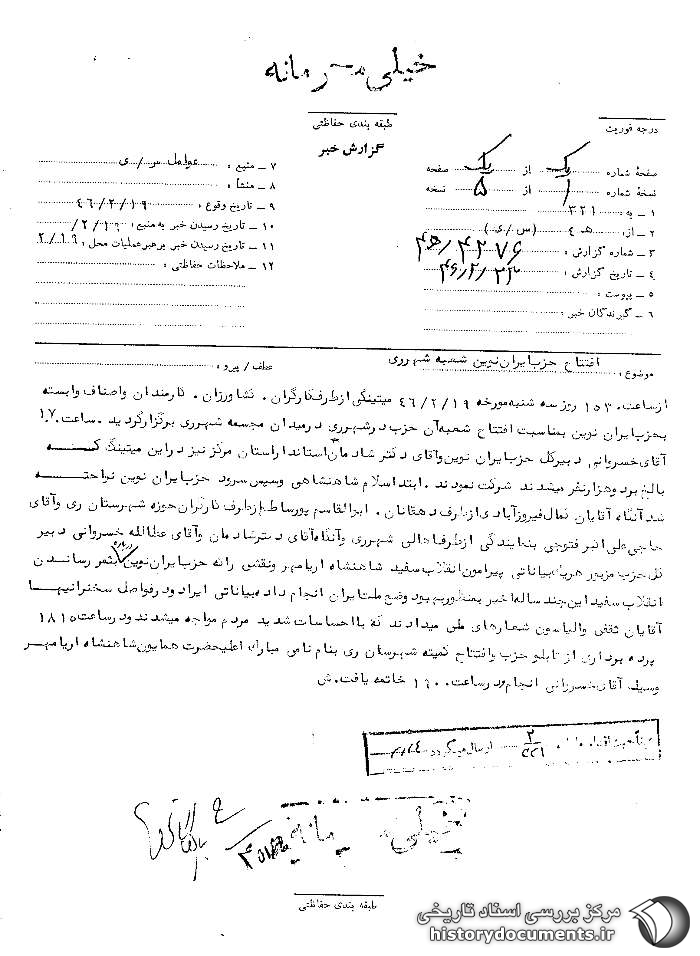 خیلی محرمانه
طبقه بندی حفاظتی
درجه فوریت
گزارش خبر
صفحهٔ شماره یک از یک صفحه
نسخهٔ شماره ۱ از ۵ نسخه
۱ ـ به : ۳۲۱
۲ ـ از : ۴ هـ (س / ی)
۳ ـ شماره گزارش :
۴ ـ تاریخ گزارش :
۵ ـ پیوست :
۶ ـ گیرندگان خبر :
۷ ـ منبع : عوامل س / ی
۸ ـ منشأ :
۹ ـ تاریخ وقوع : ۴۶/۲/۱۹
۱۰ ـ تاریخ رسیدن خبر به منبع : ۲/۱۹/
۱۱ ـ تاریخ رسیدن خبر برهبر عملیات محل : ۲/۱۹
۱۲ ـ ملاحظات حفاظتی :
موضوع : افتتاح حزب ایران نوین شعبه شهرری
عطف / پیرو :
از ساعت ۱۵۳۰ روز سه شنبه مورخه ۴۶/۲/۱۹ میتینگی از طرف کارگران . کشاورزان . کارمندان و اصناف وابسته
بحزب ایران نوین بمناسبت افتتاح شعبه آن حزب در شهرری در میدان مجسمه شهرری برگزار گردید . ساعت ۱۷۰۰
آقای خسروانی دبیر کل حزب ایران نوین و آقای دکتر شادمان استاندار استان مرکز نیز در این میتینگ کـه
بالغ بر دو هزار نفر میشدند شرکت نمودند . ابتدا سلام شاهنشاهی و سپس سرود حزب ایران نوین نواخته
شد آنگاه آقایان کمال فیروزآبادی از طرف دهقانان . ابوالقاسم پورساطع از طرف کارگران حوزه شهرستان ری و آقای
حاجی علی اکبر فتوحی بنمایندگی از طرف اهالی شهرری و آنگاه آقای دکتر شادمان و آقای عطاالله خسروانی دبیر
کل حزب مزبور هر یک بیاناتی پیرامون انقلاب سفید شاهنشاه آریامهر و نقشی را که حزب ایران نوین درباره بثمر رساندن
انقلاب سفید این چند ساله اخیر بمنظور بهبود وضع ملت ایران انجام داده بیاناتی ایراد و در فواصل سخنرانیها
آقایان ثقفی و الیاسون شعارهای طی میدادند که با احساسات شدید مردم مواجه میشدند و در ساعت ۱۸۱۵
پرده برداری از تابلو حزب و افتتاح کمیته شهرستان ری بنام نامی مبارک اعلیحضرت همایون شاهنشاه آریامهر
وسیله آقای خسروانی انجام و در ساعت خاتمه یافت . ش
ارسال میگردد
خیلی محرمانه
طبقه بندی حفاظتی
مرکز بررسی اسناد تاریخی
historydocuments.ir